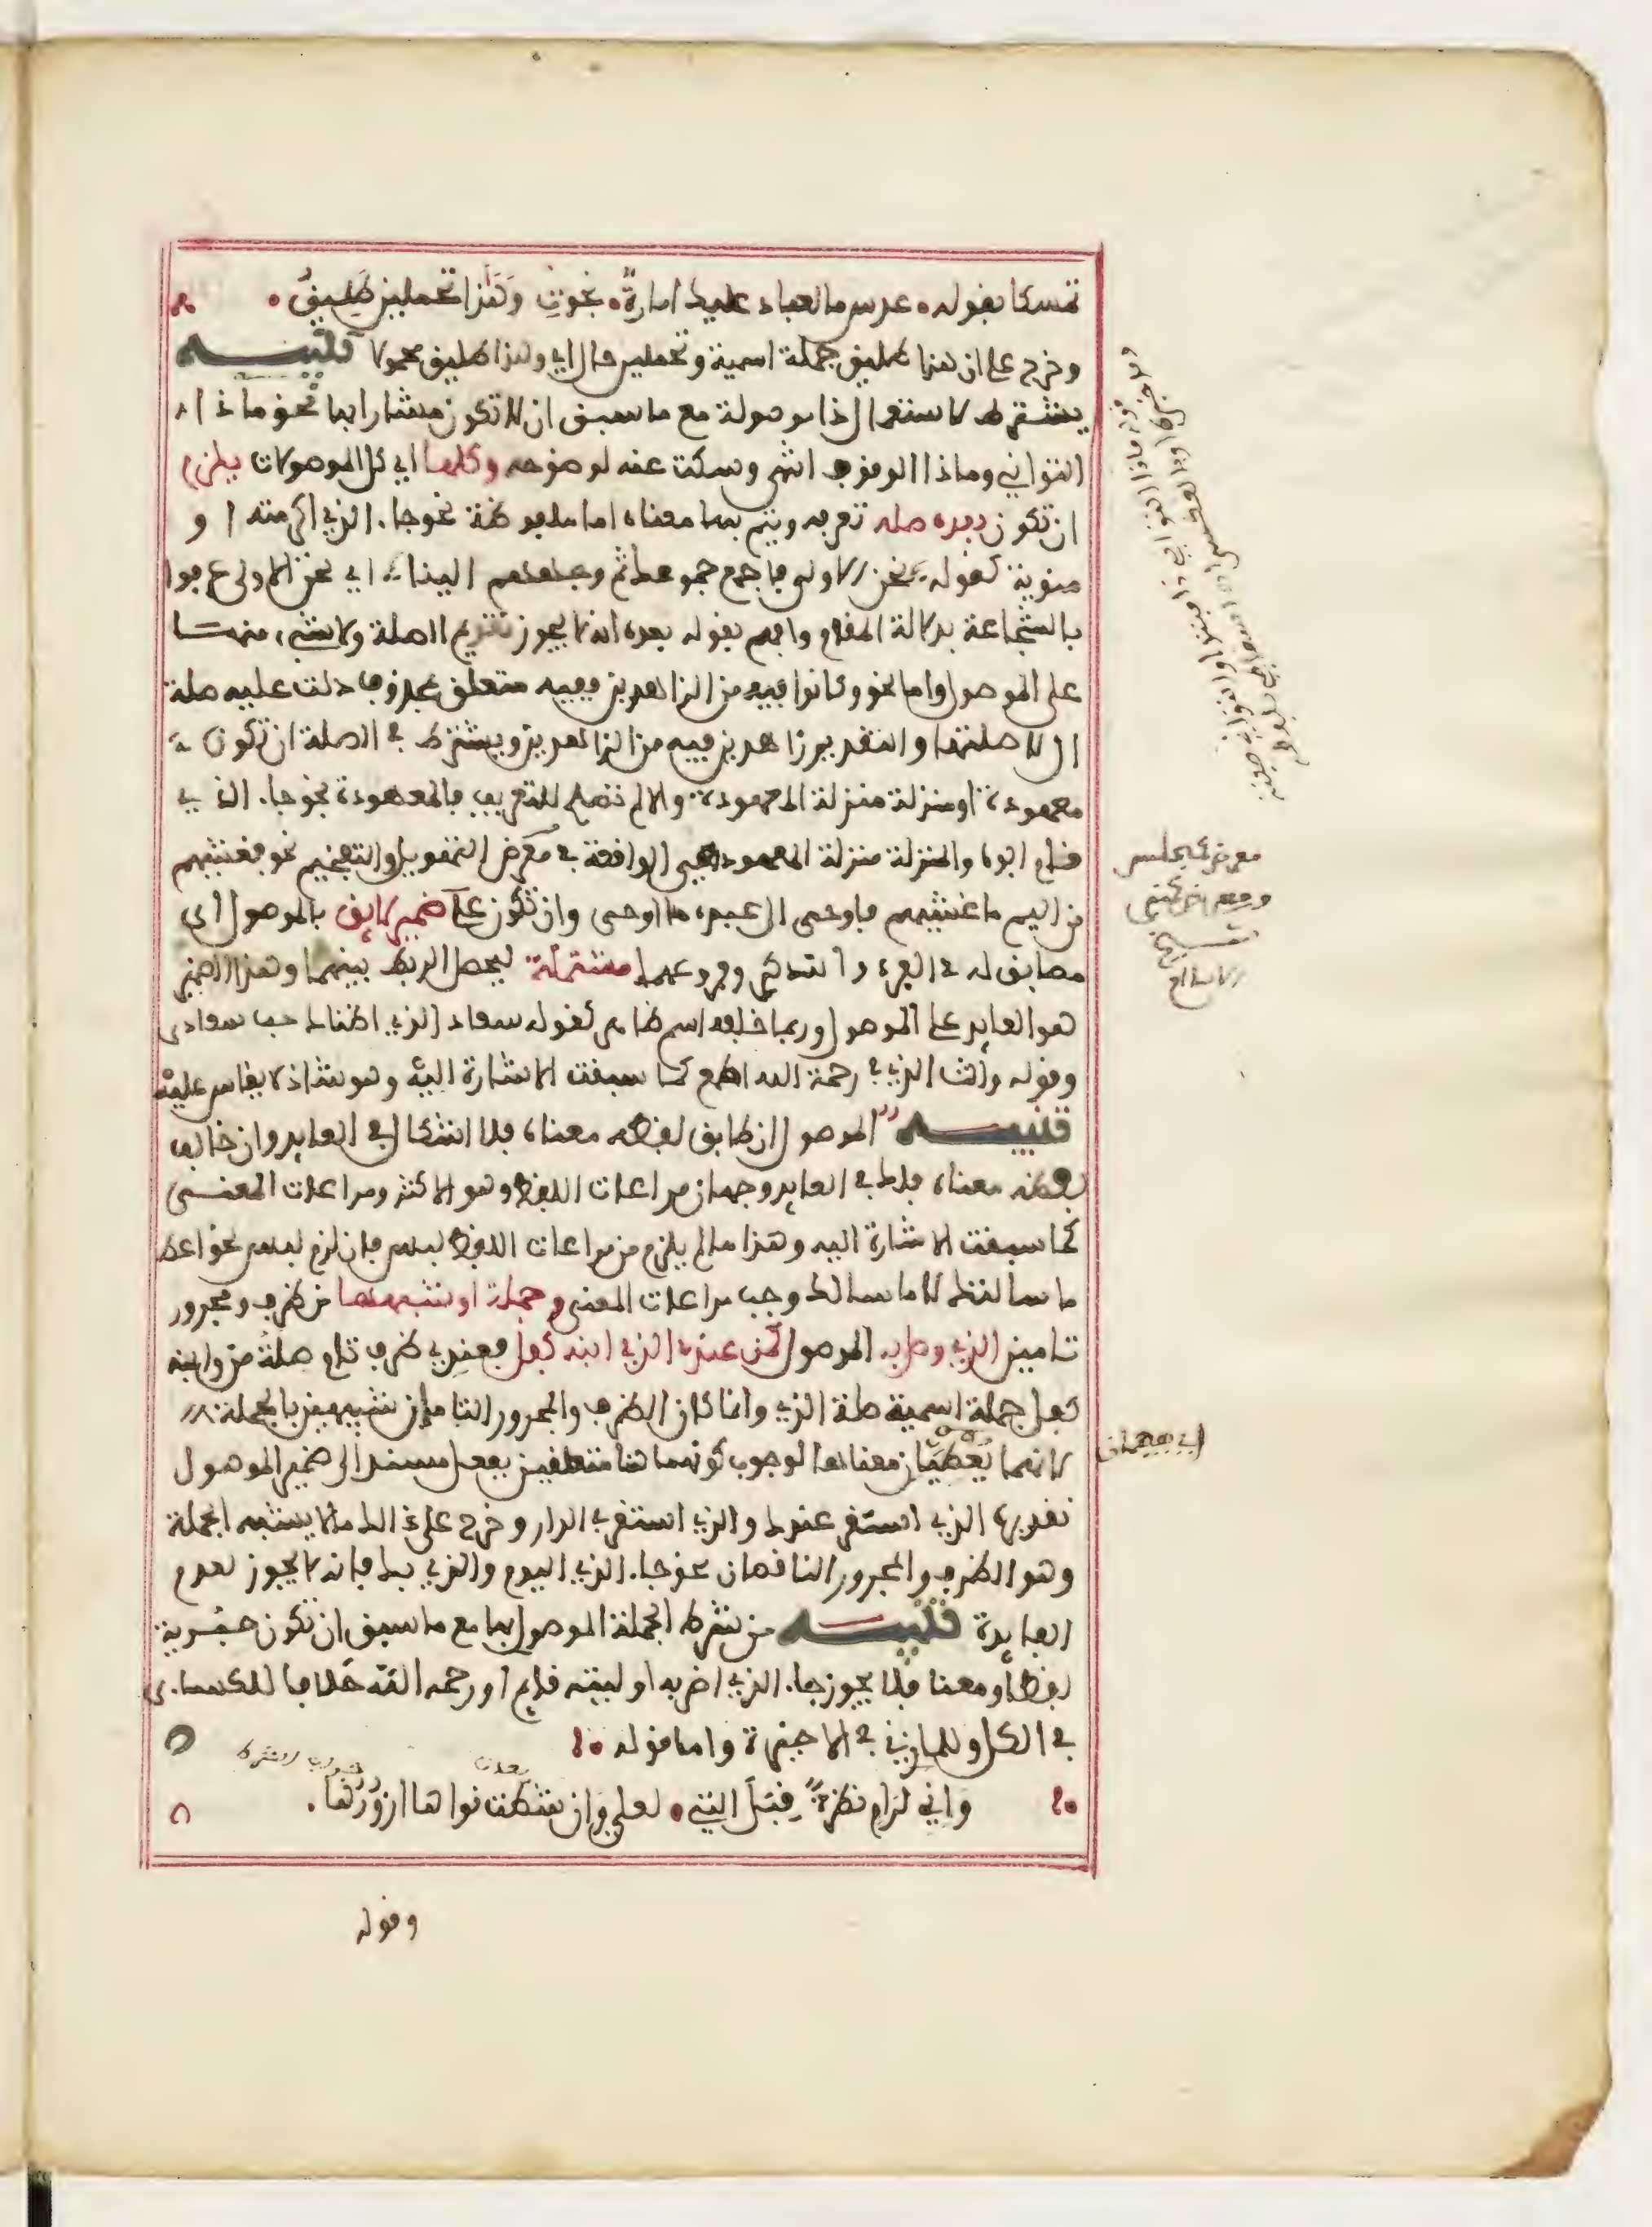 تمسكا بقوله عدس ما لعباد عليك امارة نجوت وهذا تحملين طليق
وخرج على ان هذا طليق جملة اسمية وتحملين حال اي وهذا طليق محمولا تنبيه
يشترط لاستعمال ذا موصولة مع ما سبق ان لا تكون مشارا بها نحو ماذا ا
التواني وماذا الوقوف انتهى وسكت عنه لوضوحه وكلها اي كل الموصولات يلزم
ان تكون بعده صله تعرفه ويتم بها معناه اما ملفوظة نحو جاء الذي اكرمته او
منوية كقوله نحن الاولى فاجمع جموعك ثم وجههم الينا اي نحن الاولى عرفوا
بالشجاعة بدلالة المقام وافهم بقوله بعده انه لا يجوز تقديم الصلة ولا شيء منها
على الموصول واما نحو وكانوا فيه من الزاهدين ففيه متعلق بمحذوف دلت عليه صلة
ال لا صلتها والتقدير زاهدين فيه من الزاهدين ويشترط في الصلة ان تكون
معهودة او منزلة منزلة المعهودة والا لم تصلح للتعريف فالمعهودة نحو جاء الذي
قام ابوه والمنزلة منزلة المعهود هي الواقعة في معرض التهويل والتفخيم نحو فغشيهم
من اليم ما غشيهم فاوحى الى عبده ما اوحى وان تكون على ضمير لايق بالموصول اي
مطابق له في الافراد والتذكير وفروعهما مشتملة ليحصل الربط بينهما وهذا الضمير
هو العايد على الموصول وربما خلفه اسم ظاهر كقوله سعاد الذي اظناك حب سعادى
وقوله وانت الذي في رحمة الله اطمع كما سبقت الاشارة اليه وهو شاذ لا يقاس عليه
تنبيه الموصول ان طابق لفظه معناه فلا اشكال في العايد وان خالف
لفظه معناه فلك في العايد وجهان مراعات اللفظ وهو الاكثر ومراعات المعنى
كما سبقت الاشارة اليه وهذا ما لم يلزم من مراعات اللفظ لبس فان لزم لبس نحو اعط
ما سالتك لا ما سالك وجب مراعات المعنى وجملة او شبهها من ظرف ومجرور
تامين الذي وصل به الموصول كمن عندي الذي ابنه كفل فعندي ظرف تام صلة من وابنه
كفل جملة اسمية صلة الذي وانما كان الظرف والمجرور التامان شبيهين بالجملة
لانهما يعطيان معناها لوجوب كونهما هنا متعلقين بفعل مسند الى ضمير الموصول
تقديره الذي استقر عندك والذي استقر في الدار وخرج على ذالك ما لا يشبه الجملة
وهو الظرف والمجرور الناقصان نحو جاء الذي اليوم والذي بك فانه لا يجوز لعدم
الفايدة تنبيه من شرط الجملة الموصول بها مع ما سبق ان تكون خبرية
لفظا ومعنا فلا يجوز جاء الذي اضربه او ليته قايم او رحمه الله خلافا للكساءي
في الكل وللمازني في الاخيرة واما قوله
واني لرام نظرة قبل التي لعلي وان شطت نواها ازورها
بعدت
جواب الشرط
وقوله